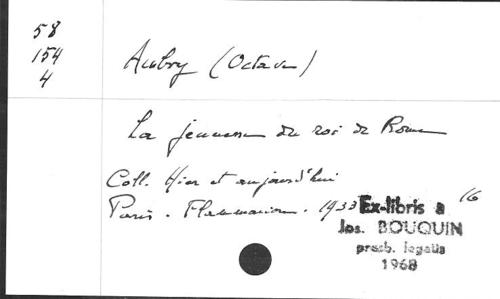 58
154
4
Aubry (Octave)
La jeunesse du roi de Rome
Coll. Hier et aujourd'hui
Paris. Flammarion. 1933
16
Ex-libris a
Jos. BOUQUIN
presb. legatis
1968